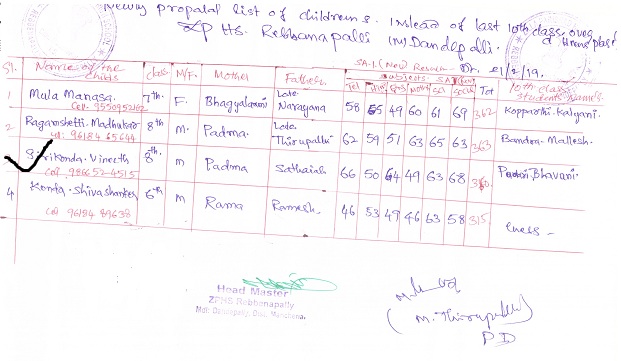 Newly propotal list of childrens. Instead of last 10th class, over
ZP HS. Rebbanapalli (M) Dandepalli.
Dt. 21/2/19.
SA-1 (New Result)
Subjects
Sl. Name of the childs class M/F. Mother Father Tel Hin Eng Maths Sci Social Tot 10th class Students Names
1 Mula Manasa. 7th F. Bhagyalaxmi Late. Narayana 58 65 49 60 61 69 362 Kopparthi. Kalyani.
Cell. 9550952162
2 Ragamshetti. Madhukar 8th M. Padma. Late. Thirupathi 62 59 51 63 65 63 363 Bandra. Mallesh.
Cell: 96184 65644
Sirikonda. Vineeth 8th M Padma Sathaiah 66 50 64 49 63 68 360 Bhavani.
Cell. 986652 4515
4 Konda. Shivashanker 6th M Rama Ramesh. 46 53 49 46 63 58 315
Cell 96184 89638
Head Master
ZPHS Rebbenapally
Mdl: Dandepally, Dist. Mancherial.
(M. Thirupathi)
P D